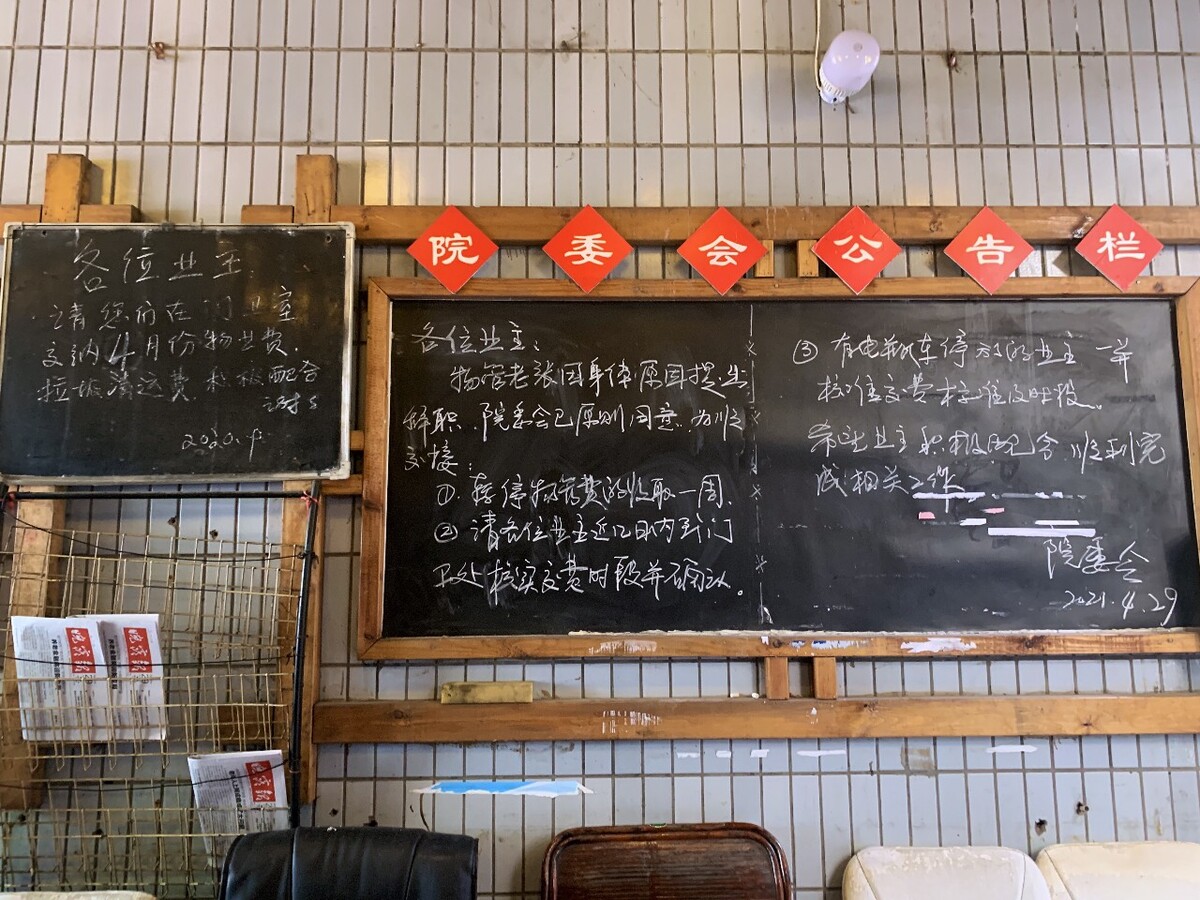 院委会公告栏
各位业主
请您们在门卫室
交纳4月份物业费.
垃圾清运费.积极配合
谢谢
各位业主:
物管老张因身体原因提出
辞职.院委会已原则同意.为顺
交接:
①.暂停物管费的收取一周.
②请各位业主近几日内到门
卫处核实交费时段并确认。
③有电瓶车停放的业主一并
核准交费标准及时段。
希望业主积极配合顺利完
成相关工作
院委会
2021.4.29